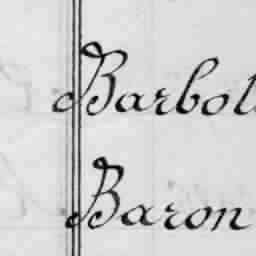 Barbot
Baron